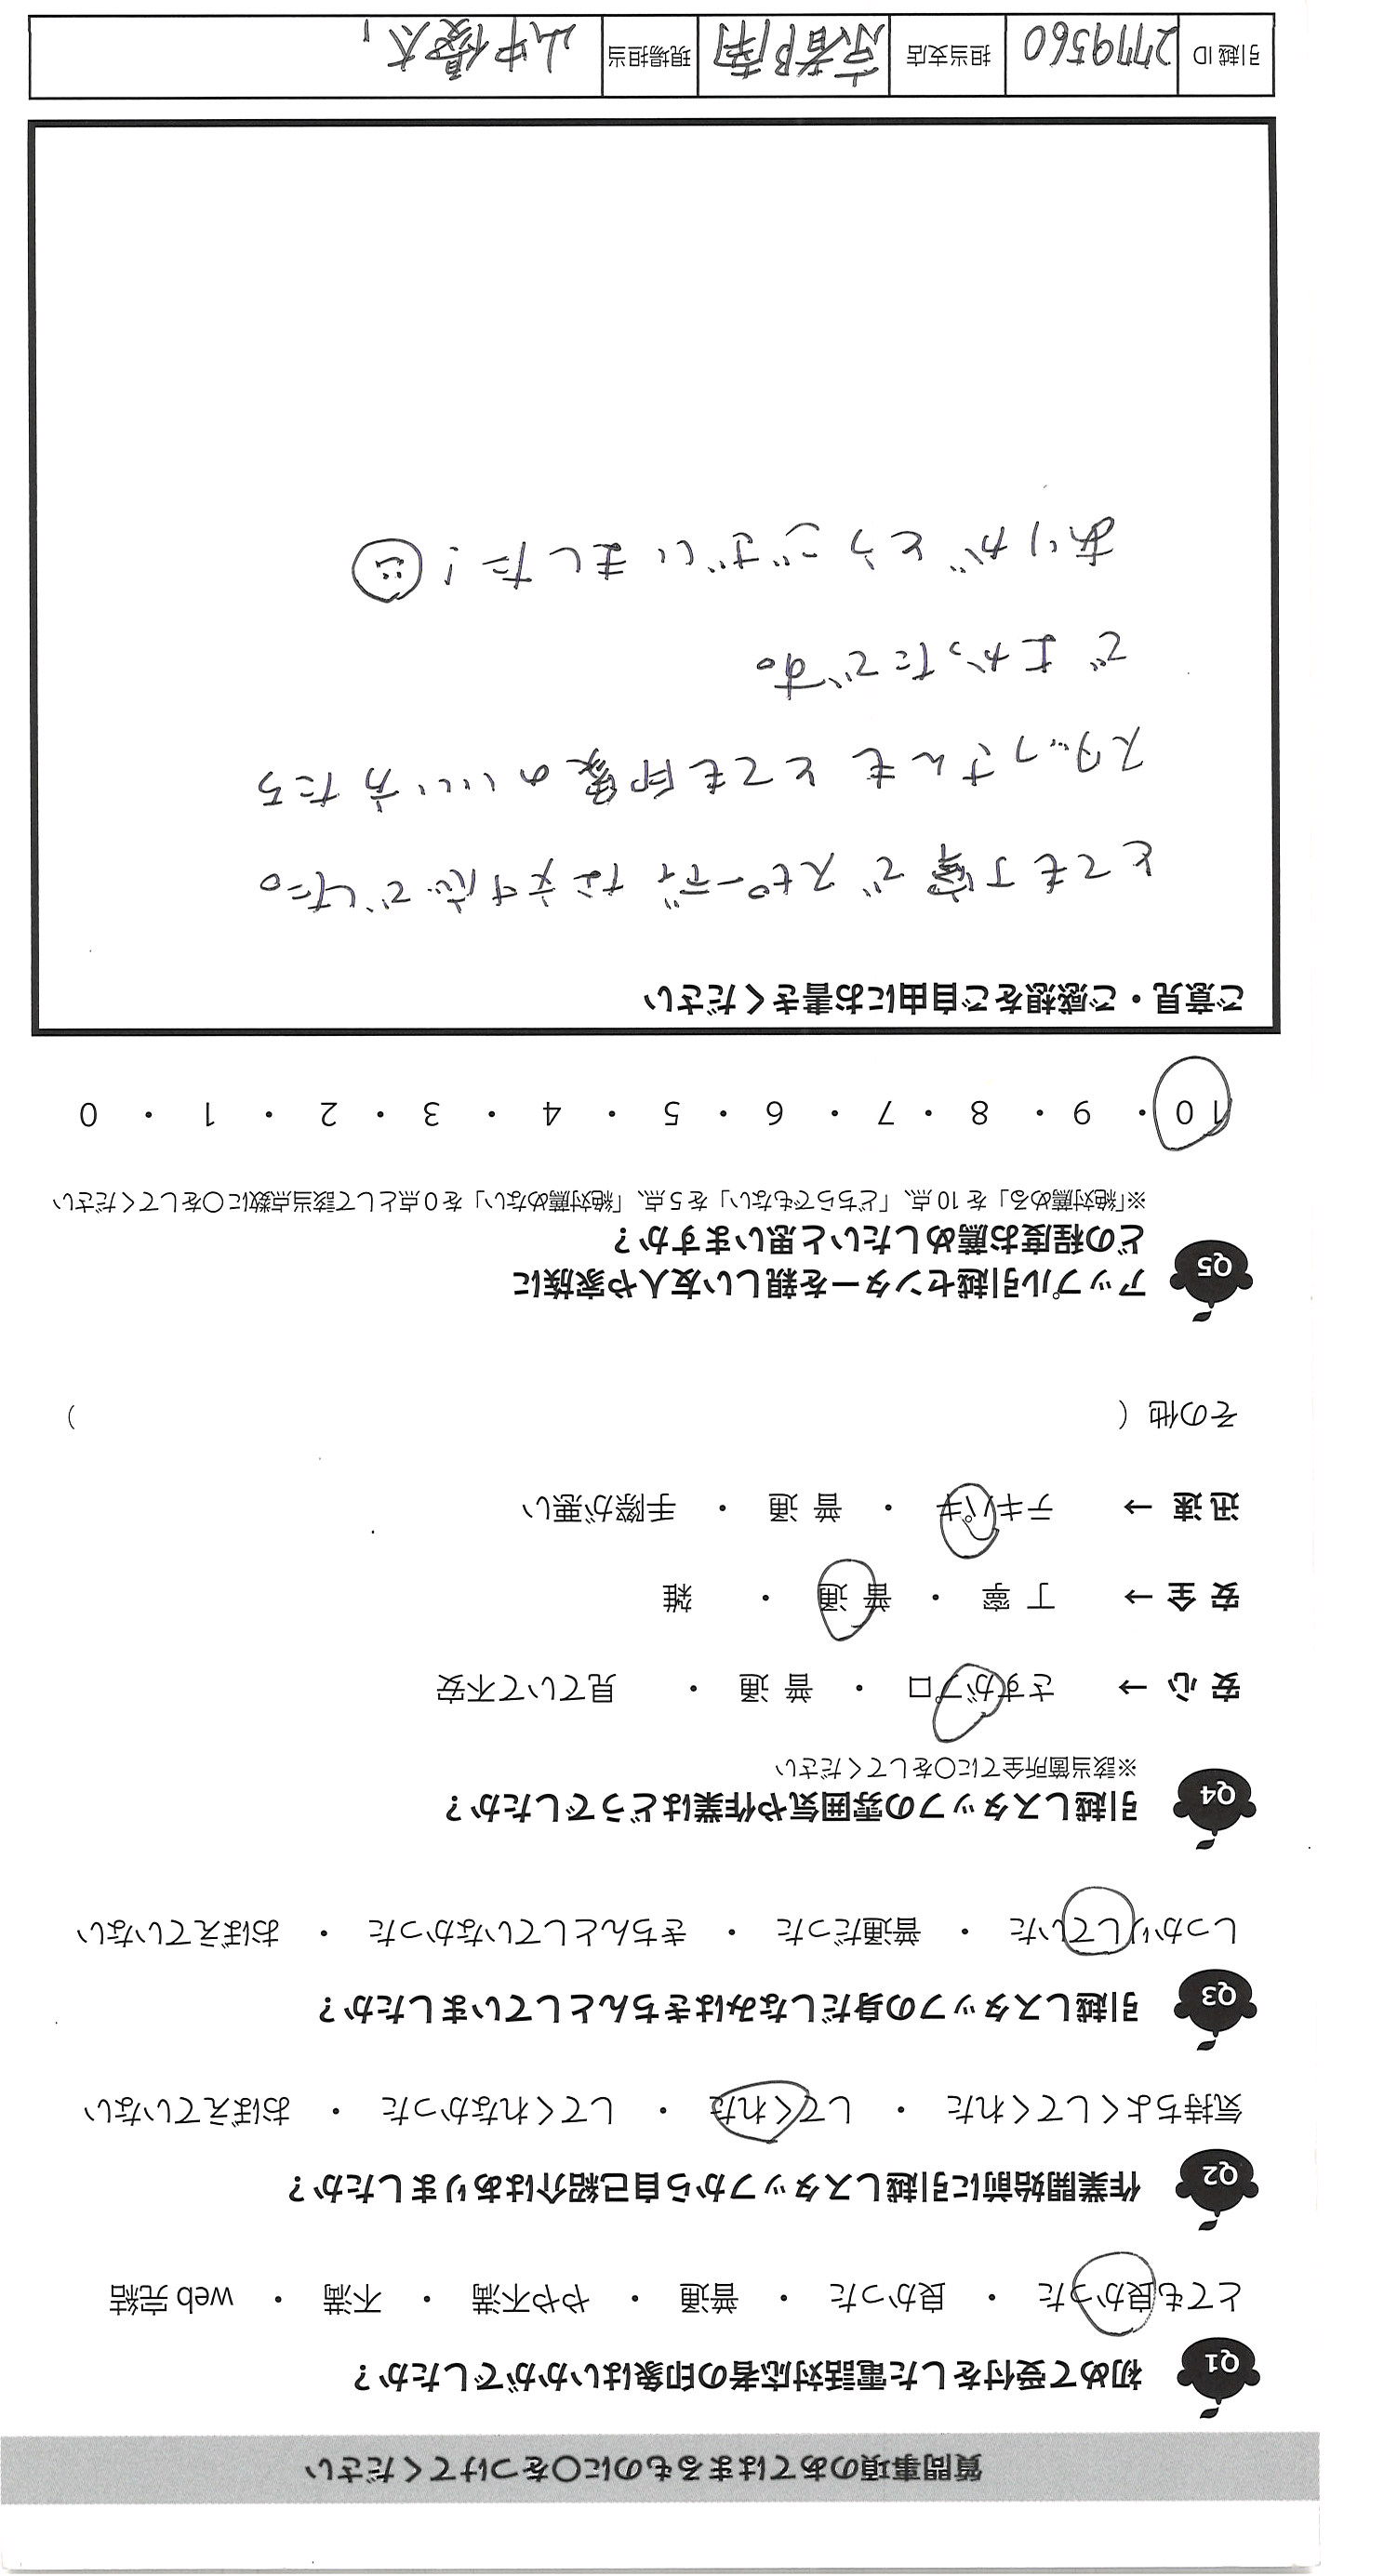 質問事項のあてはまるものに○をつけてください
Q1 初めて受付をした電話対応者の印象はいかがでしたか？
とても良かった ・ 良かった ・ 普通 ・ やや不満 ・ 不満 ・ web 完結
Q2 作業開始前に引越しスタッフから自己紹介はありましたか？
気持ちよくしてくれた ・ してくれた ・ してくれなかった ・ おぼえていない
Q3 引越しスタッフの身だしなみはきちんとしていましたか？
しっかりしていた ・ 普通だった ・ きちんとしていなかった ・ おぼえていない
Q4 引越しスタッフの雰囲気や作業はどうでしたか？
※該当箇所全てに○をしてください
安 心 → さすがプロ ・ 普 通 ・ 見ていて不安
安 全 → 丁 寧 ・ 普 通 ・ 雑
迅 速 → テキパキ ・ 普 通 ・ 手際が悪い
その他（ ）
Q5 アップル引越センターを親しい友人や家族に
どの程度お薦めしたいと思いますか？
※「絶対薦める」を 10 点、「どちらでもない」を 5 点、「絶対薦めない」を 0 点として該当点数に○をしてください
10 ・ 9 ・ 8 ・ 7 ・ 6 ・ 5 ・ 4 ・ 3 ・ 2 ・ 1 ・ 0
ご意見・ご感想をご自由にお書きください
とても丁寧で スピーディな対応でした。
スタッフさんも とても印象のいい 方たち
で よかったです。
ありがとうございました！
引越 ID 2779560 担当支店 京都南 現場担当 山中優太